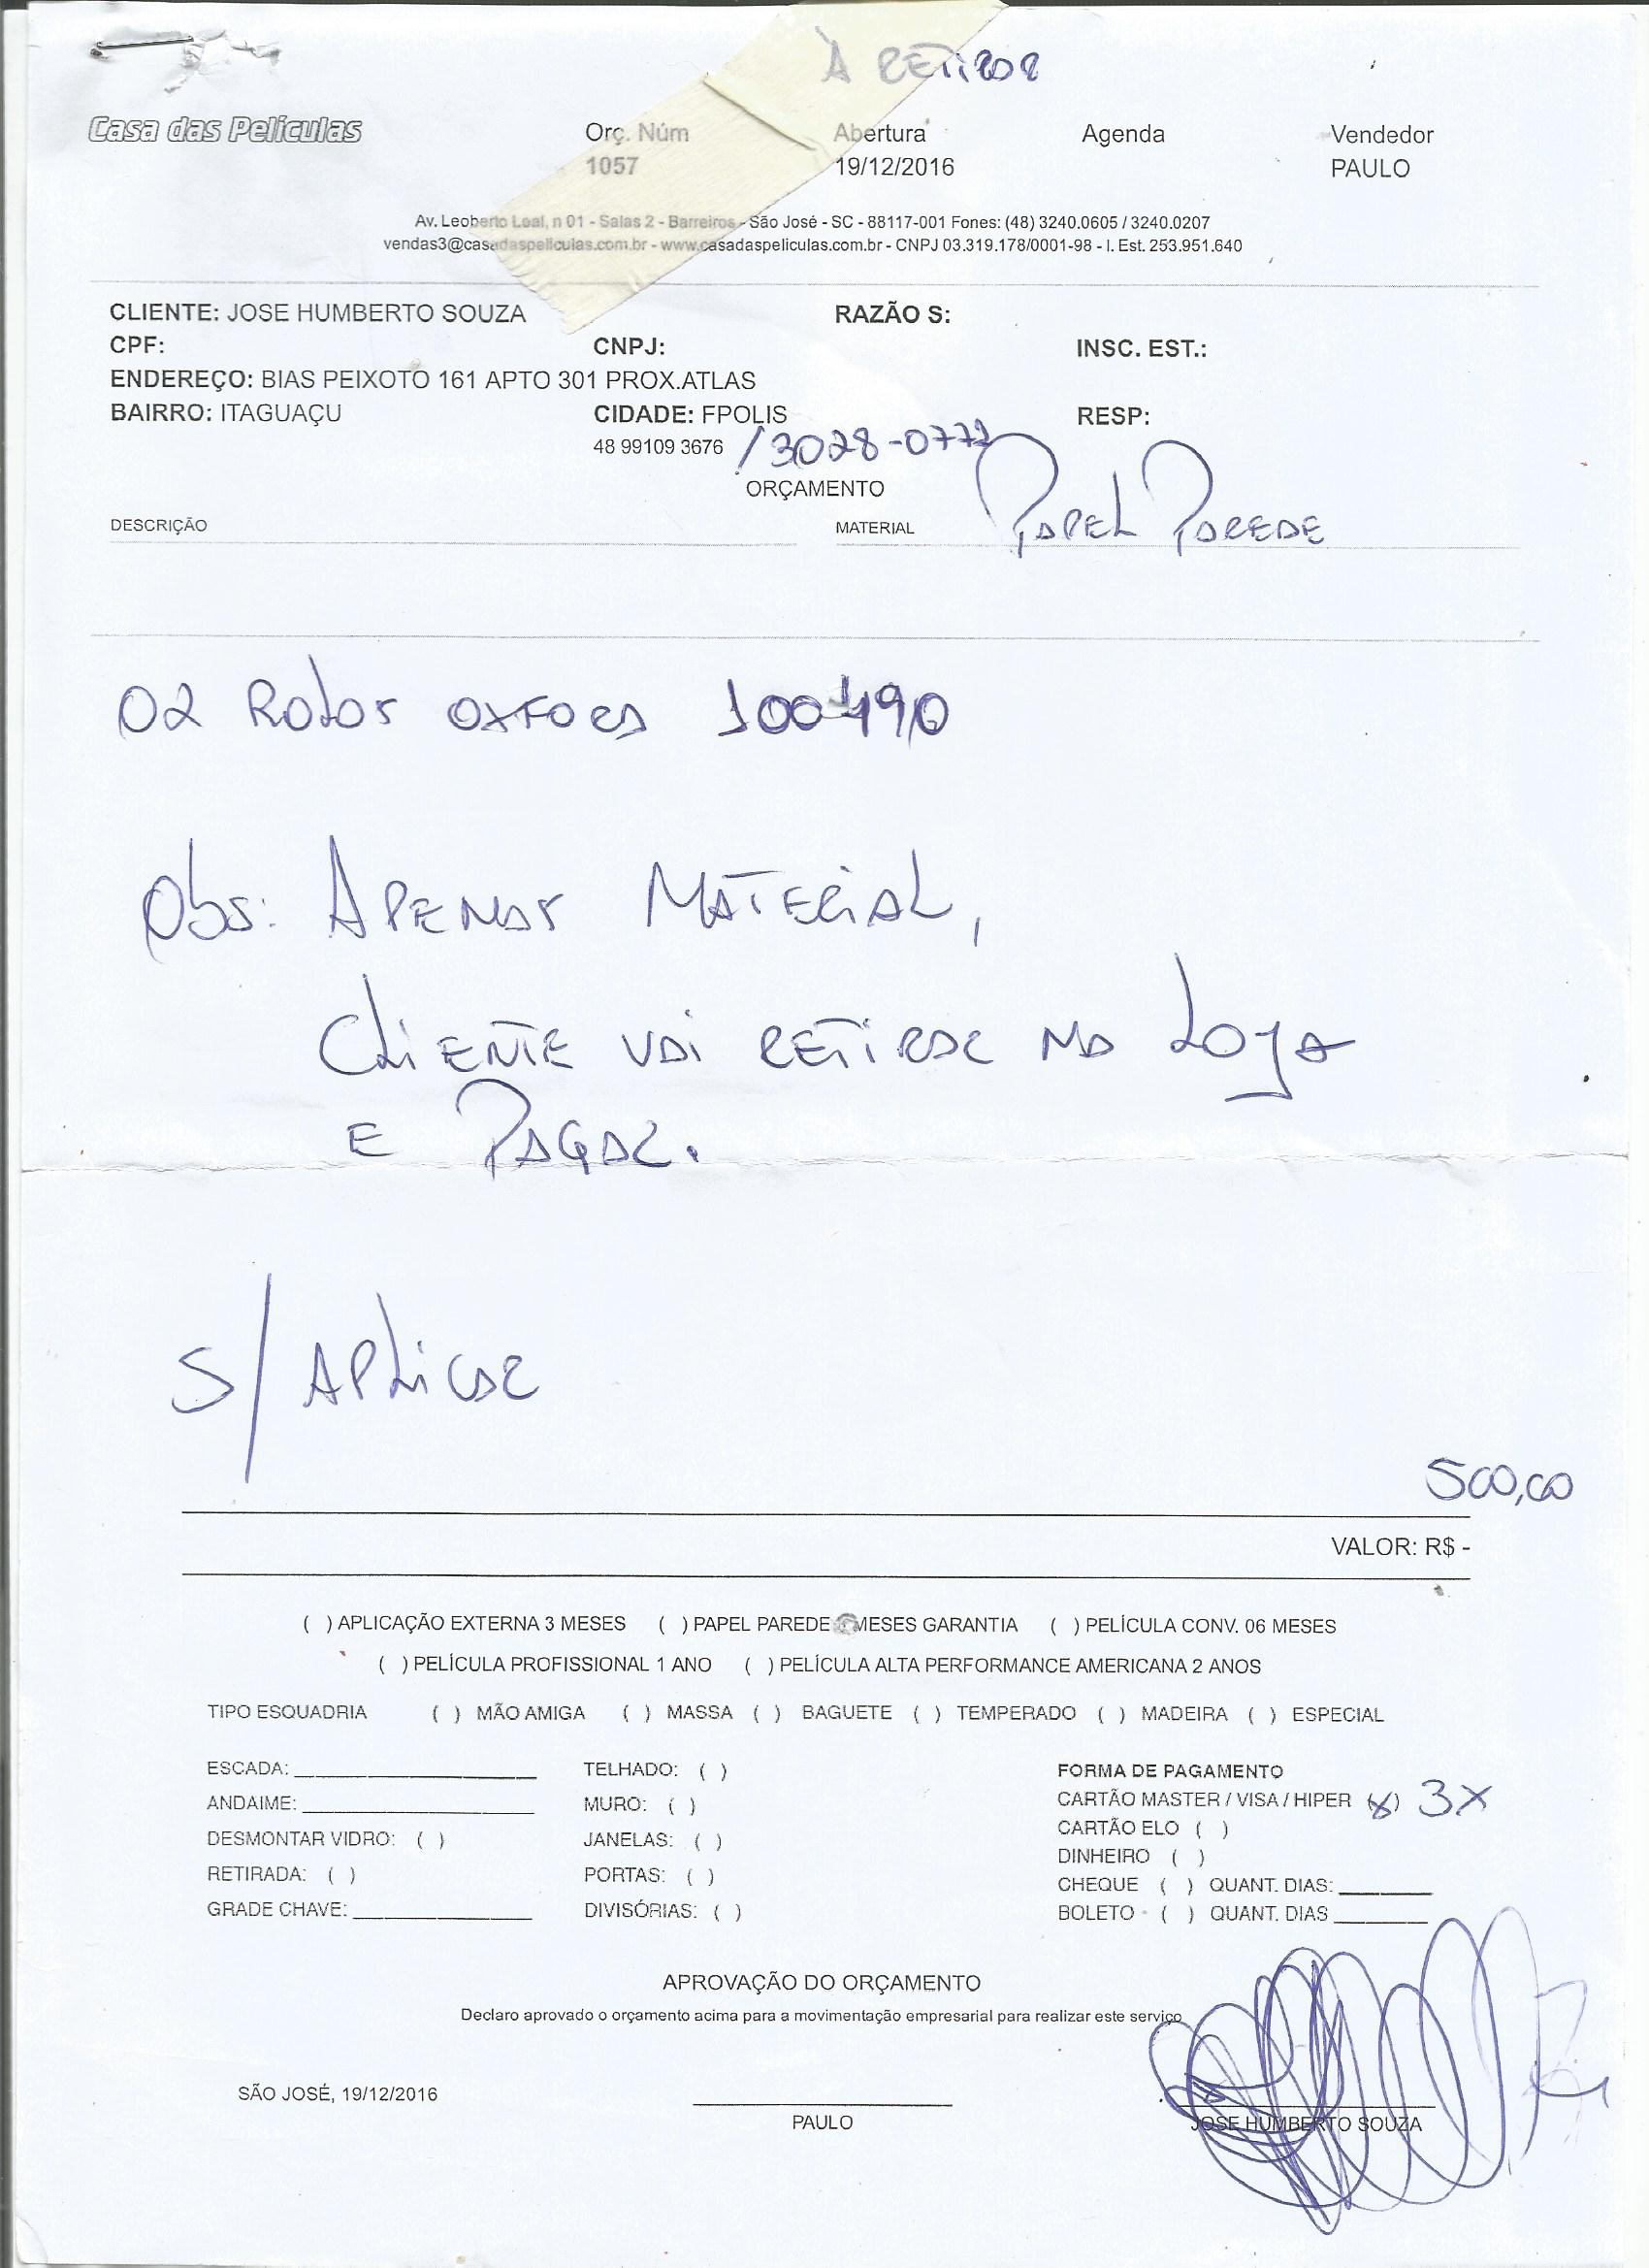 À RETIRAR
Casa das Películas
Orç. Núm Abertura Agenda Vendedor
1057 19/12/2016 PAULO
Av. Leoberto Leal, n 01 - Salas 2 - Barreiros - São José - SC - 88117-001 Fones: (48) 3240.0605 / 3240.0207
vendas3@casadaspeliculas.com.br - www.casadaspeliculas.com.br - CNPJ 03.319.178/0001-98 - I. Est. 253.951.640
CLIENTE: JOSE HUMBERTO SOUZA RAZÃO S:
CPF: CNPJ: INSC. EST.:
ENDEREÇO: BIAS PEIXOTO 161 APTO 301 PROX.ATLAS
BAIRRO: ITAGUAÇU CIDADE: FPOLIS RESP:
48 99109 3676 / 3028-0772
ORÇAMENTO
DESCRIÇÃO MATERIAL PAPEL PAREDE
02 Rolos OXFORD 100490
Obs: APENAS MATERIAL,
CLIENTE VAI RETIRAR NA LOJA
E PAGAR.
S/ APLICAR
500,00
VALOR: R$ -
( ) APLICAÇÃO EXTERNA 3 MESES ( ) PAPEL PAREDE MESES GARANTIA ( ) PELÍCULA CONV. 06 MESES
( ) PELÍCULA PROFISSIONAL 1 ANO ( ) PELÍCULA ALTA PERFORMANCE AMERICANA 2 ANOS
TIPO ESQUADRIA ( ) MÃO AMIGA ( ) MASSA ( ) BAGUETE ( ) TEMPERADO ( ) MADEIRA ( ) ESPECIAL
ESCADA: TELHADO: ( ) FORMA DE PAGAMENTO
ANDAIME: MURO: ( ) CARTÃO MASTER / VISA / HIPER (x) 3X
DESMONTAR VIDRO: ( ) JANELAS: ( ) CARTÃO ELO ( )
RETIRADA: ( ) PORTAS: ( ) DINHEIRO ( )
GRADE CHAVE: DIVISÓRIAS: ( ) CHEQUE ( ) QUANT. DIAS:
BOLETO - ( ) QUANT. DIAS
APROVAÇÃO DO ORÇAMENTO
Declaro aprovado o orçamento acima para a movimentação empresarial para realizar este serviço
SÃO JOSÉ, 19/12/2016
PAULO JOSE HUMBERTO SOUZA